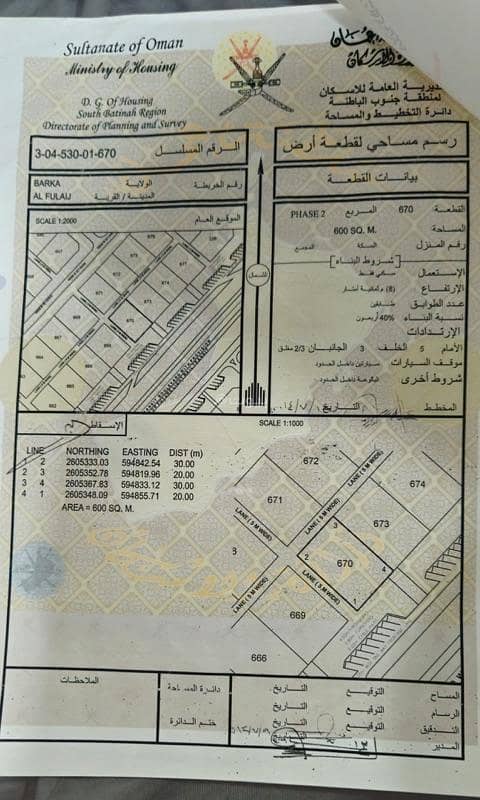 Sultanate of Oman
Ministry of Housing
D. G. Of Housing
South Batinah Region
Directorate of Planning and Survey
المديرية العامة للاسكان
لمنطقة جنوب الباطنة
دائرة التخطيط والمساحة
3-04-530-01-670
الرقم المسلسل
رسم مساحي لقطعة أرض
BARKA
الولاية
رقم الخريطة
AL FULAIJ
المدينة / القرية
بيانات القطعة
SCALE 1:2000
الموقع العام
القطعة
670
المربع
PHASE 2
المساحة
600 SQ. M.
رقم المنزل
السكة
المجمع
شروط البناء
الإستعمال
سكني فقط
الإرتفاع
عدد الطوابق
طابقين
نسبة البناء
40% أربعون
الإرتدادات
الأمام 5 الخلف 3 الجانبان 2/3 مطلق
موقف السيارات
سيارتين داخل الحدود
شروط أخرى
البلكونة داخل الحدود
المخطط
التاريخ
الشمال
الإسقاط
SCALE 1:1000
LINE NORTHING EASTING DIST (m)
1 2 2605333.03 594842.54 30.00
2 3 2605352.78 594819.96 20.00
3 4 2605367.83 594833.12 30.00
4 1 2605348.09 594855.71 20.00
AREA = 600 SQ. M.
672
674
671
673
LANE ( 5 M WIDE)
LANE ( 5 M WIDE)
3
2
670
4
1
LANE ( 5 M WIDE)
LANE ( 5 M WIDE)
669
666
الملاحظات
دائرة المساحة
ختم الدائرة
المساح
التوقيع
التاريخ
الرسام
التوقيع
التاريخ
التدقيق
التوقيع
التاريخ
المدير